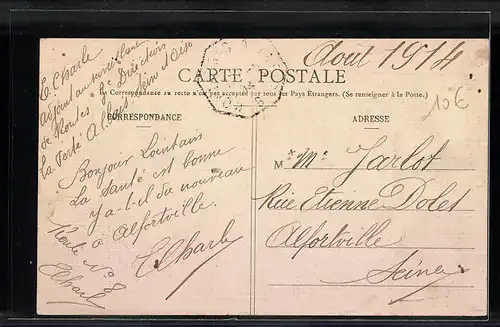 Août 1914
CARTE POSTALE
La Correspondance au recto n'est pas acceptée par tous les Pays Étrangers. (Se renseigner à la Poste.)
10€
CORRESPONDANCE
E. Charle
de Routes 2e Direction
la Ferté Alais Seine et Oise
Bonjour Lointain
La Santé est bonne
y-a-t-il du nouveau
à Alfortville.
ECharle
Route No 8
ECharle
ADRESSE
Mr Me Jarlot
Rue Etienne Dolet
Alfortville
Seine